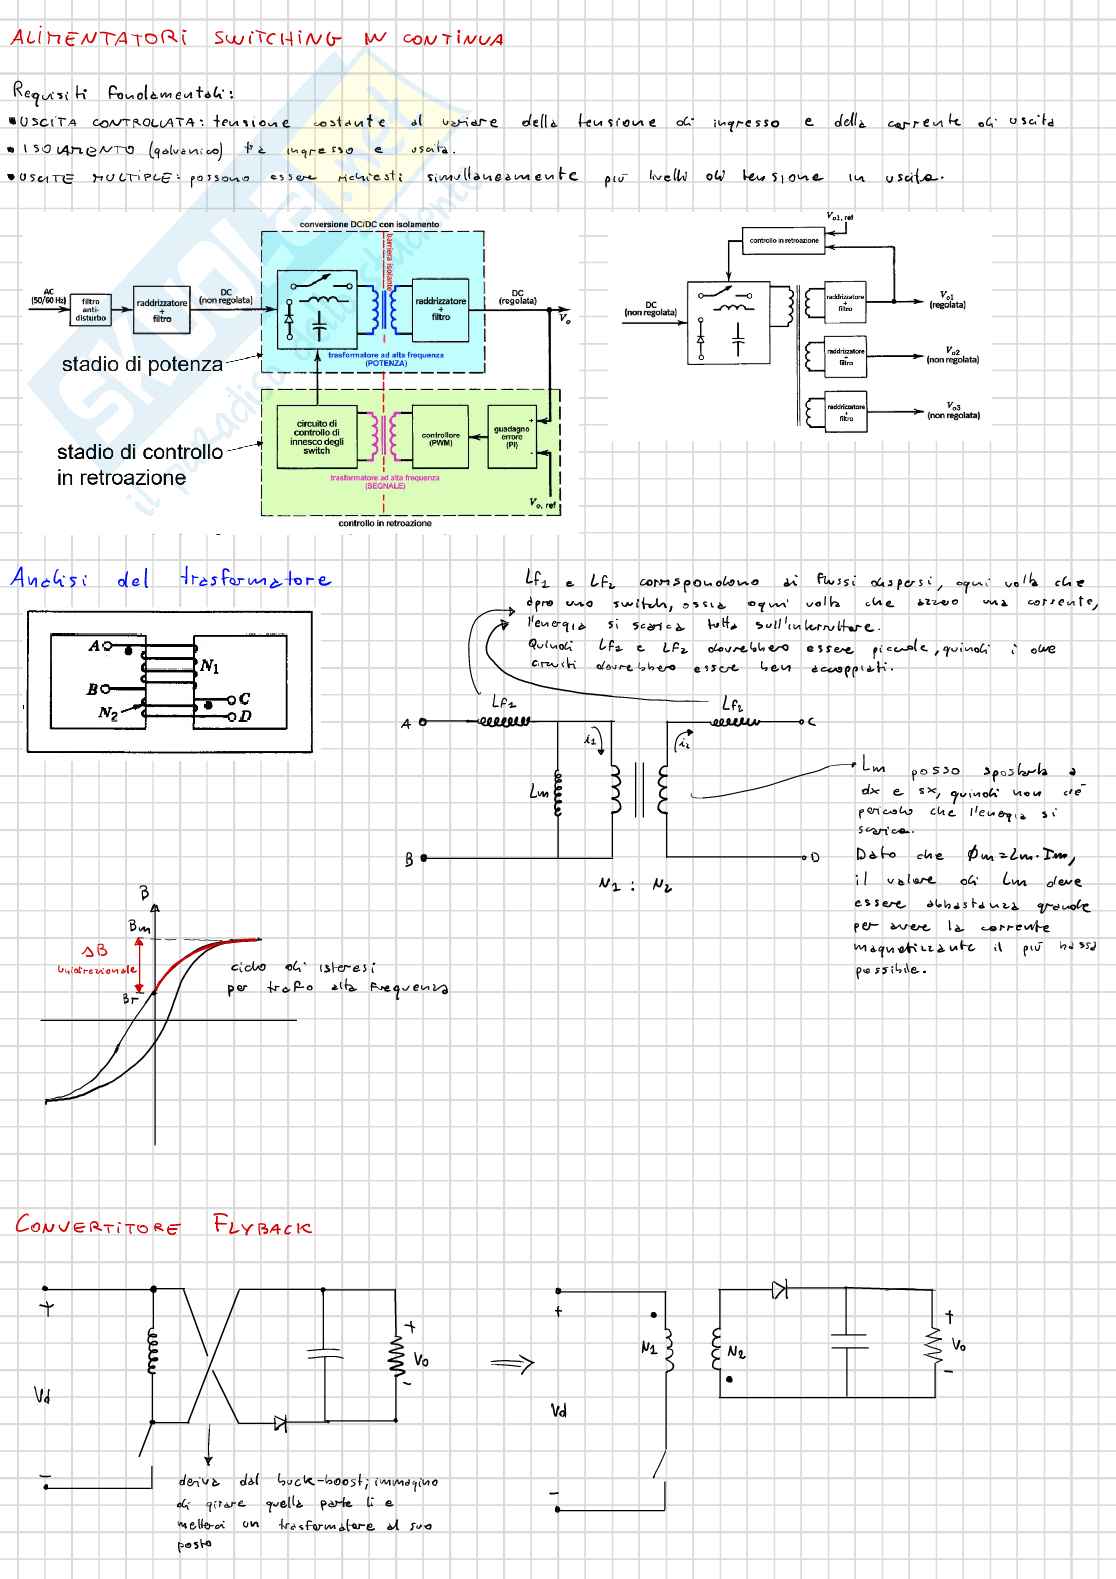 ALIMENTATORI SWITCHING IN CONTINUA
Requisiti fondamentali:
• USCITA CONTROLLATA: tensione costante al variare della tensione di ingresso e della corrente di uscita
• ISOLAMENTO (galvanico) tra ingresso e uscita.
• USCITE MULTIPLE: possono essere richiesti simultaneamente più livelli di tensione in uscita.
conversione DC/DC con isolamento
barriera isolante
AC
(50/60 Hz)
filtro
anti-
disturbo
raddrizzatore
+
filtro
DC
(non regolata)
raddrizzatore
+
filtro
DC
(regolata)
Vo
trasformatore ad alta frequenza
(POTENZA)
stadio di potenza
stadio di controllo
in retroazione
circuito di
controllo di
innesco degli
switch
controllore
(PWM)
guadagno
errore
(PI)
+
-
trasformatore ad alta frequenza
(SEGNALE)
Vo, ref
controllo in retroazione
Vo1, ref
controllo in retroazione
DC
(non regolata)
raddrizzatore
+
filtro
Vo1
(regolata)
raddrizzatore
+
filtro
Vo2
(non regolata)
raddrizzatore
+
filtro
Vo3
(non regolata)
Analisi del trasformatore
Lf1 e Lf2 corrispondono ai flussi dispersi, ogni volta che
apro uno switch, ossia ogni volta che azzero una corrente,
l'energia si scarica tutta sull'interruttore.
Quindi Lf2 e Lf2 dovrebbero essere piccole, quindi i due
circuiti dovrebbero essere ben accoppiati.
A
B
N1
N2
C
D
Lf1
Lf2
A
C
i1
i2
Lm
B
D
N1 : N2
Lm posso spostarla a
dx e sx, quindi non c'è
pericolo che l'energia si
scarica.
Dato che Φm=Lm·Im,
il valore di Lm deve
essere abbastanza grande
per avere la corrente
magnetizzante il più bassa
possibile.
B
Bm
ΔB
unidirezionale
Br
ciclo di isteresi
per trafo alta frequenza
CONVERTITORE FLYBACK
+
Vd
-
+
Vo
-
deriva dal buck-boost; immagino
di girare quella parte lì e
metterci un trasformatore al suo
posto
+
Vd
-
N1
N2
+
Vo
-
skuola.net